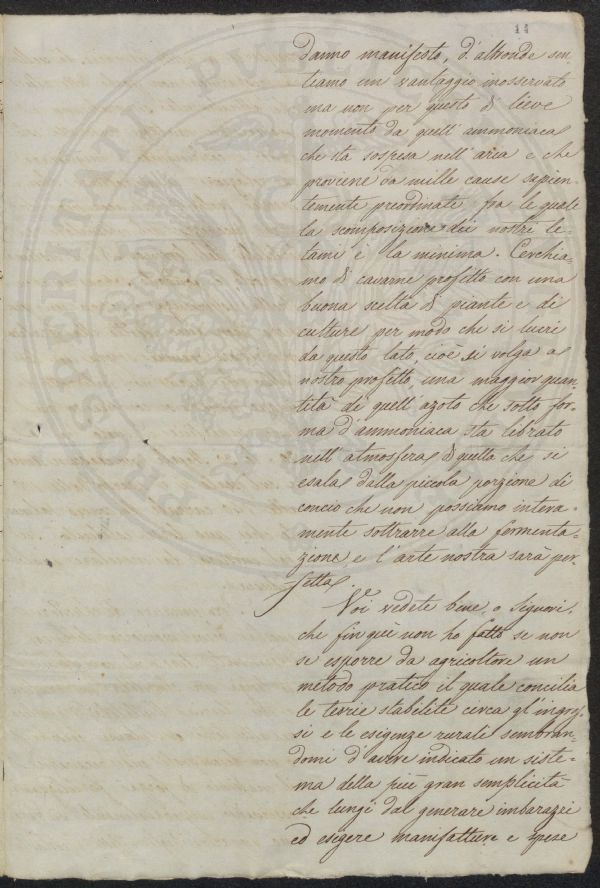 11
danno manifesto, d'altronde sen-
tiamo un vantaggio inosservato
ma non per questo di lieve
momento da quell'ammoniaca
che sta sospesa nell'aria e che
proviene da mille cause sapien-
temente preordinate fra le quale
la scomposizione dei nostri le-
tami è la minima. Cerchia-
mo di cavarne profitto con una
buona scelta di piante e di
culture per modo che si lucri
da questo lato, cioè si volga a
nostro profitto, una maggior quan-
tità di quell'azoto che sotto for-
ma d'ammoniaca sta librato
nell'atmosfera di quella che si
esala dalla piccola porzione di
concio che non possiamo intera-
mente sottrarre alla fermenta-
zione e l'arte nostra sarà per-
fetta.
Voi vedete bene, o Signori,
che fin quì non ho fatto se non
se esporre da agricoltore un
metodo pratico il quale concilia
le teorie stabilite cerca gl'ingras-
si e le esigenze rurali sembran-
domi d'avere indicato un siste-
ma della più gran semplicità
che lungi dal generare imbarazzi
ed esigere manifatture e spese
PROSPERITATI PUBL